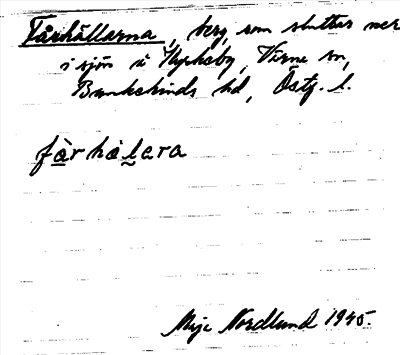 Fårhällarna, berg, som sluttar ner
i sjön å Hycksby, Virne sn,
Bankekinds hd, Östg. l.
fàrhàlera
Maje Nordlund 1945.